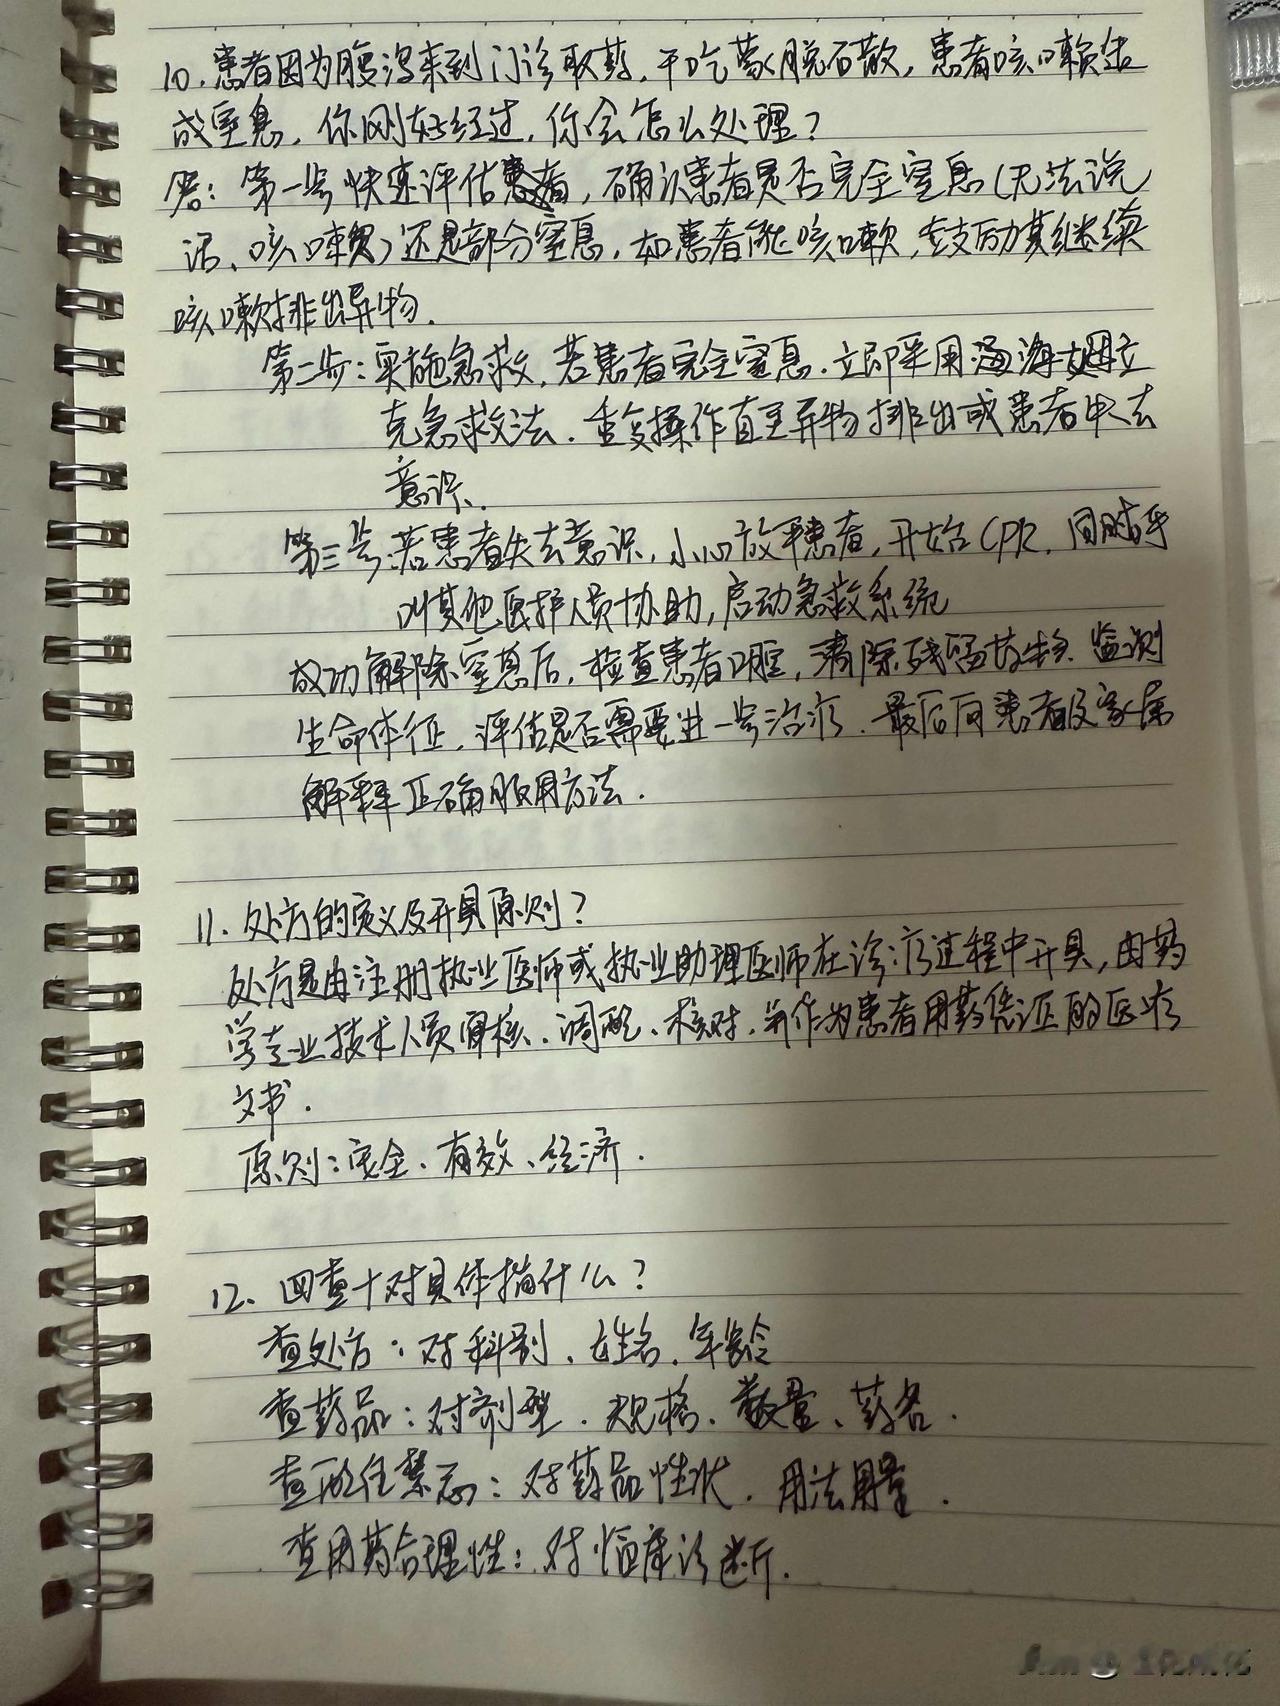 10. 患者因为腹泻来到门诊取药，干吃蒙脱石散，患者咳嗽造
成窒息，你刚好经过，你会怎么处理？
答：第一步快速评估患者，确认患者是否完全窒息(无法说
话、咳嗽)还是部分窒息，如患者能咳嗽，鼓励其继续
咳嗽排出异物.
第二步：实施急救，若患者完全窒息，立即采用海姆立
克急救法．重复操作直至异物排出或患者失去
意识、
第三步：若患者失去意识，小心放平患者，开始CPR，同时呼
叫其他医护人员协助，启动急救系统
成功解除窒息后，检查患者口腔，清除残留药物．监测
生命体征，评估是否需要进一步治疗．最后向患者及家属
解释正确服用方法．
11、处方的定义及开具原则？
处方是由注册执业医师或执业助理医师在诊疗过程中开具，由药
学专业技术人员审核、调配、核对，并作为患者用药凭证的医疗
文书．
原则：安全、有效、经济．
12、四查十对具体指什么？
查处方：对科别、姓名、年龄
查药品：对剂型．规格、数量、药名．
查配伍禁忌：对药品性状．用法用量．
查用药合理性：对临床诊断．